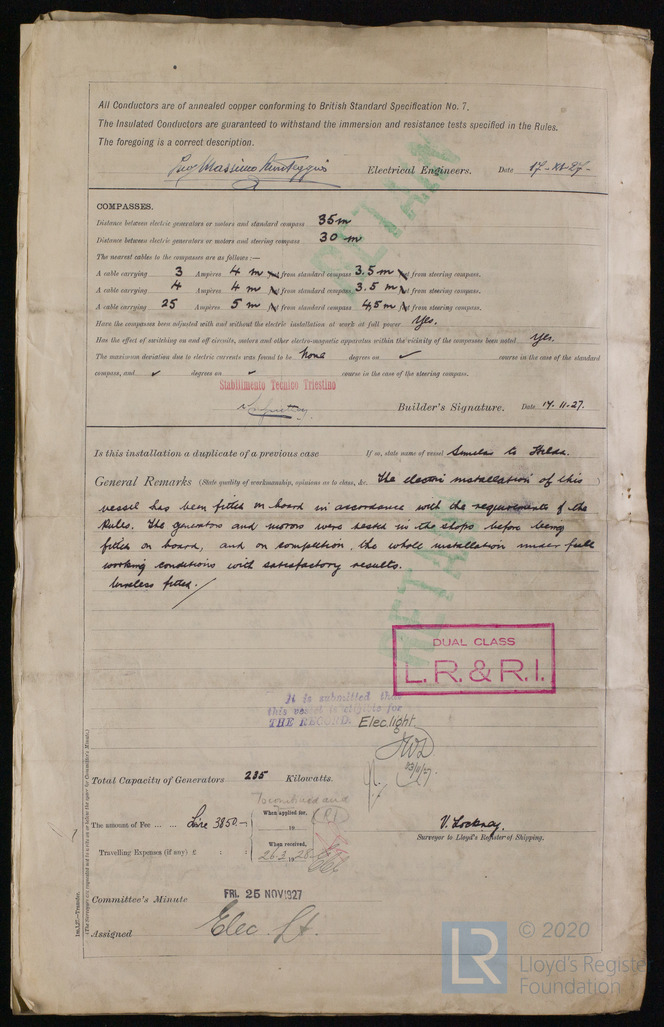 All Conductors are of annealed copper conforming to British Standard Specification No. 7.
The Insulated Conductors are guaranteed to withstand the immersion and resistance tests specified in the Rules.
The foregoing is a correct description.
Massimo Electrical Engineers. Date 17-XI-27-
COMPASSES.
Distance between electric generators or motors and standard compass 35 m
Distance between electric generators or motors and steering compass 30 m
The nearest cables to the compasses are as follows:—
A cable carrying 3 Ampères 4 m from standard compass 3.5 m from steering compass.
A cable carrying 4 Ampères 4 m from standard compass 3.5 m from steering compass.
A cable carrying 25 Ampères 5 m from standard compass 4,5 m from steering compass.
Have the compasses been adjusted with and without the electric installation at work at full power Yes.
Has the effect of switching on and off circuits, motors and other electro-magnetic apparatus within the vicinity of the compasses been noted Yes.
The maximum deviation due to electric currents was found to be None degrees on ✓ course in the case of the standard
compass, and ✓ degrees on ✓ course in the case of the steering compass.
Stabilimento Tecnico Triestino
Builder's Signature. Date 14.11.27.
Is this installation a duplicate of a previous case If so, state name of vessel Similar to Hilda.
General Remarks (State quality of workmanship, opinions as to class, &c. The electric installation of this )
vessel has been fitted on board in accordance with the requirements of the
Rules. The generators and motors were tested in the shops before being
fitted on board, and on completion, the whole installation under full
working conditions with satisfactory results.
Wireless fitted.
RETAIN
RETAIN
DUAL CLASS
L.R. & R.I.
It is submitted that
this vessel is eligible for
THE RECORD. Elec. light
23/11/27.
Total Capacity of Generators 285 Kilowatts.
The amount of Fee ... ... Lire 3850.- When applied for,
19
Travelling Expenses (if any) £ : : When received,
26.3.1928
V. Lockney.
Surveyor to Lloyd's Register of Shipping.
Committee's Minute FRI. 25 NOV 1927
Assigned Elec. Lt.
1m,1,27.—Transfer.
(The Surveyors are requested not to write on or below the space for Committee's Minute.)
LR © 2020
Lloyd's Register
Foundation